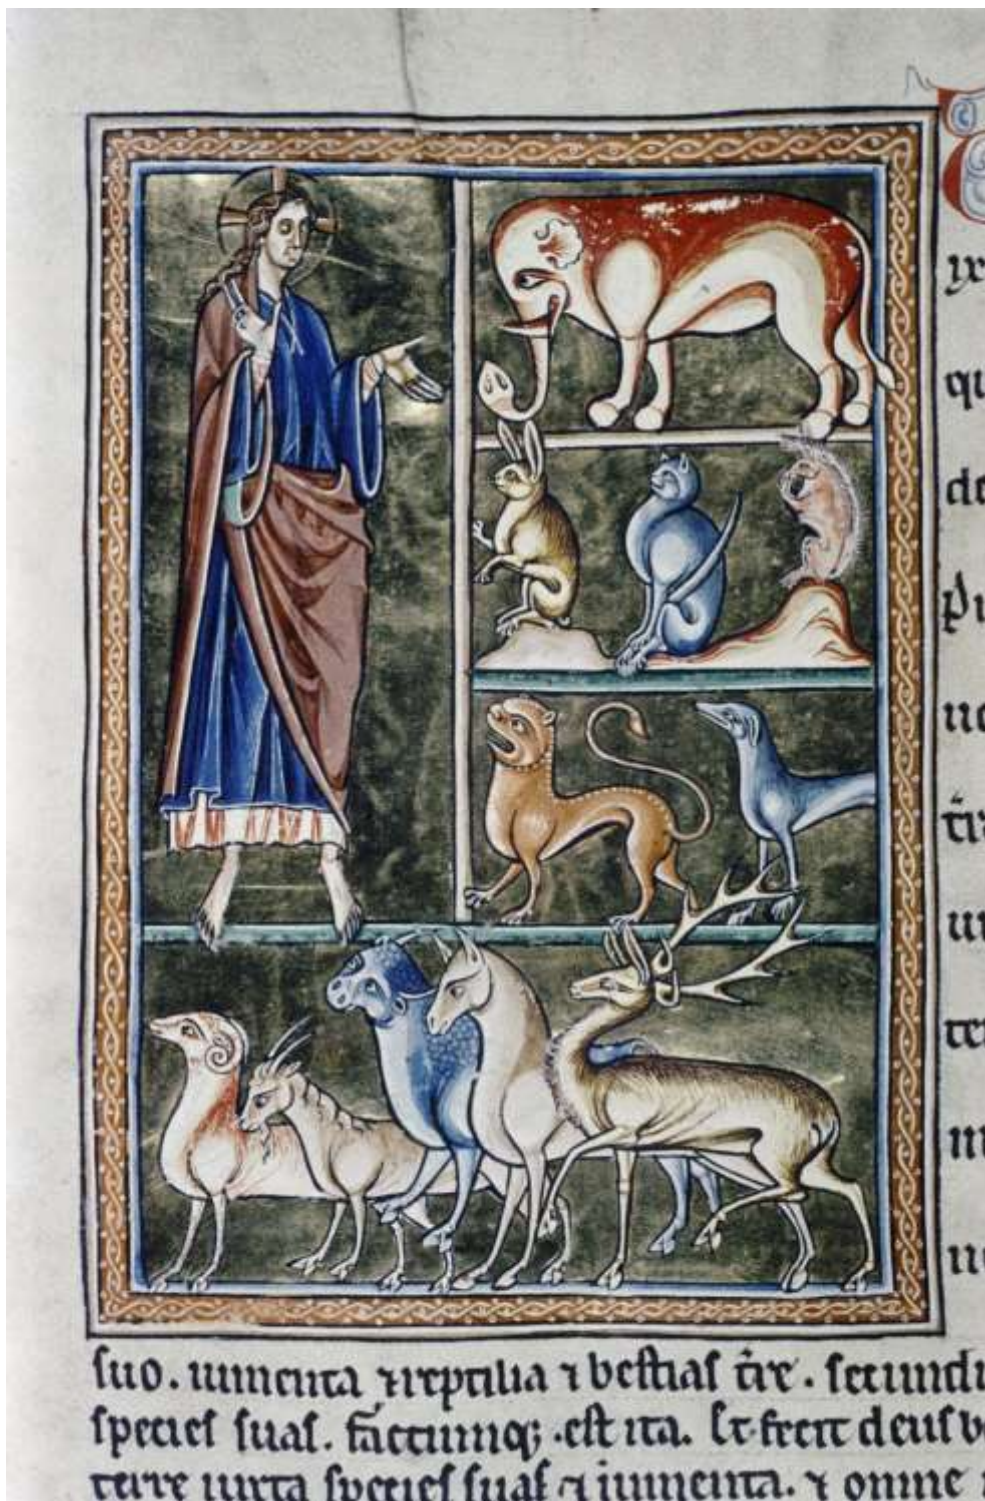 yx
qu
de
p
uo
tir
ui
ter
m
suo. iumenta ⁊ reptilia ⁊ bestias t̄re. secundu
species suas. factumq; est ita. Et fecit deus b
terre iuxta species suas ⁊ iumenta. ⁊ omne